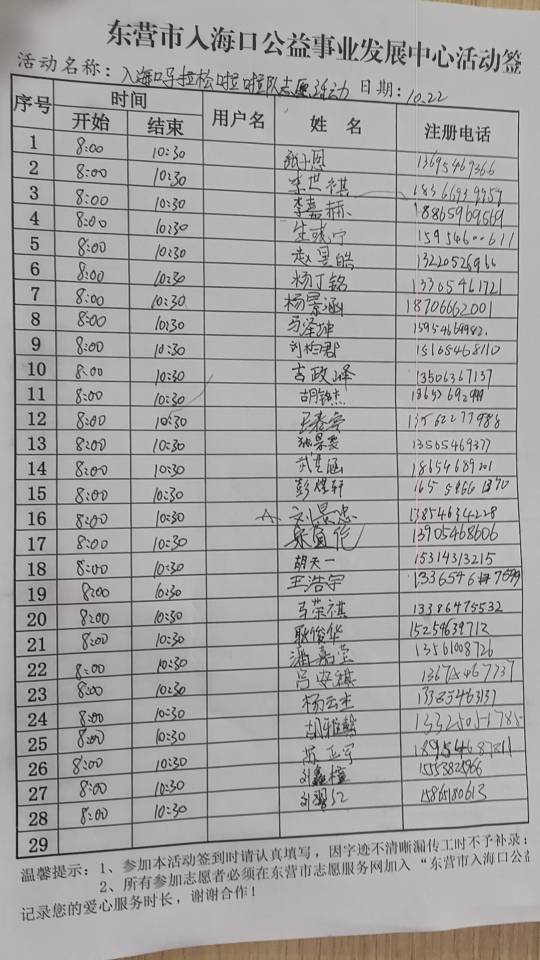 东营市入海口公益事业发展中心活动签
活动名称：入海口马拉松啦啦队志愿活动 日期：10.22
序号 时间 用户名 姓 名 注册电话
开始 结束
1 8:00 10:30 13695469366
2 8:00 10:30 李世祺
3 8:00 10:30 李嘉赫 18865969569
4 8:00 10:30 15954600611
5 8:00 10:30 赵昱皓 13220526966
6 8:00 10:30 杨丁铭 13305461721
7 8:00 10:30 杨景涵 18706662001
8 8:00 10:30 马泽坤 15954664982
9 8:00 10:30 15165468110
10 8:00 10:30 吉政峰 13506367137
11 8:00 10:30
12 8:00 10:30 13562277988
13 8:00 10:30 13505469377
14 8:00 10:30 18654689201
15 8:00 10:30 彭煜轩
16 8:00 10:30 刘景忠 13854634228
17 8:00 10:30 13905468606
18 8:00 10:30 胡天一 15314313215
19 8:00 10:30 王浩宇
20 8:00 10:30 马荣祺 13386475532
21 8:00 10:30 耿俊华 15259639712
22 8:00 10:30 潘嘉莹 13561008726
23 8:00 10:30 吕安祺
24 8:00 10:30 杨云杰 13385463137
25 8:00 10:30
26 8:00 10:30
27 8:00 10:30 15553825966
28 8:00 10:30 15865180613
29
温馨提示：1、参加本活动签到时请认真填写，因字迹不清晰漏传工时不予补录；
2、所有参加志愿者必须在东营市志愿服务网加入“东营市入海口公益
记录您的爱心服务时长，谢谢合作！